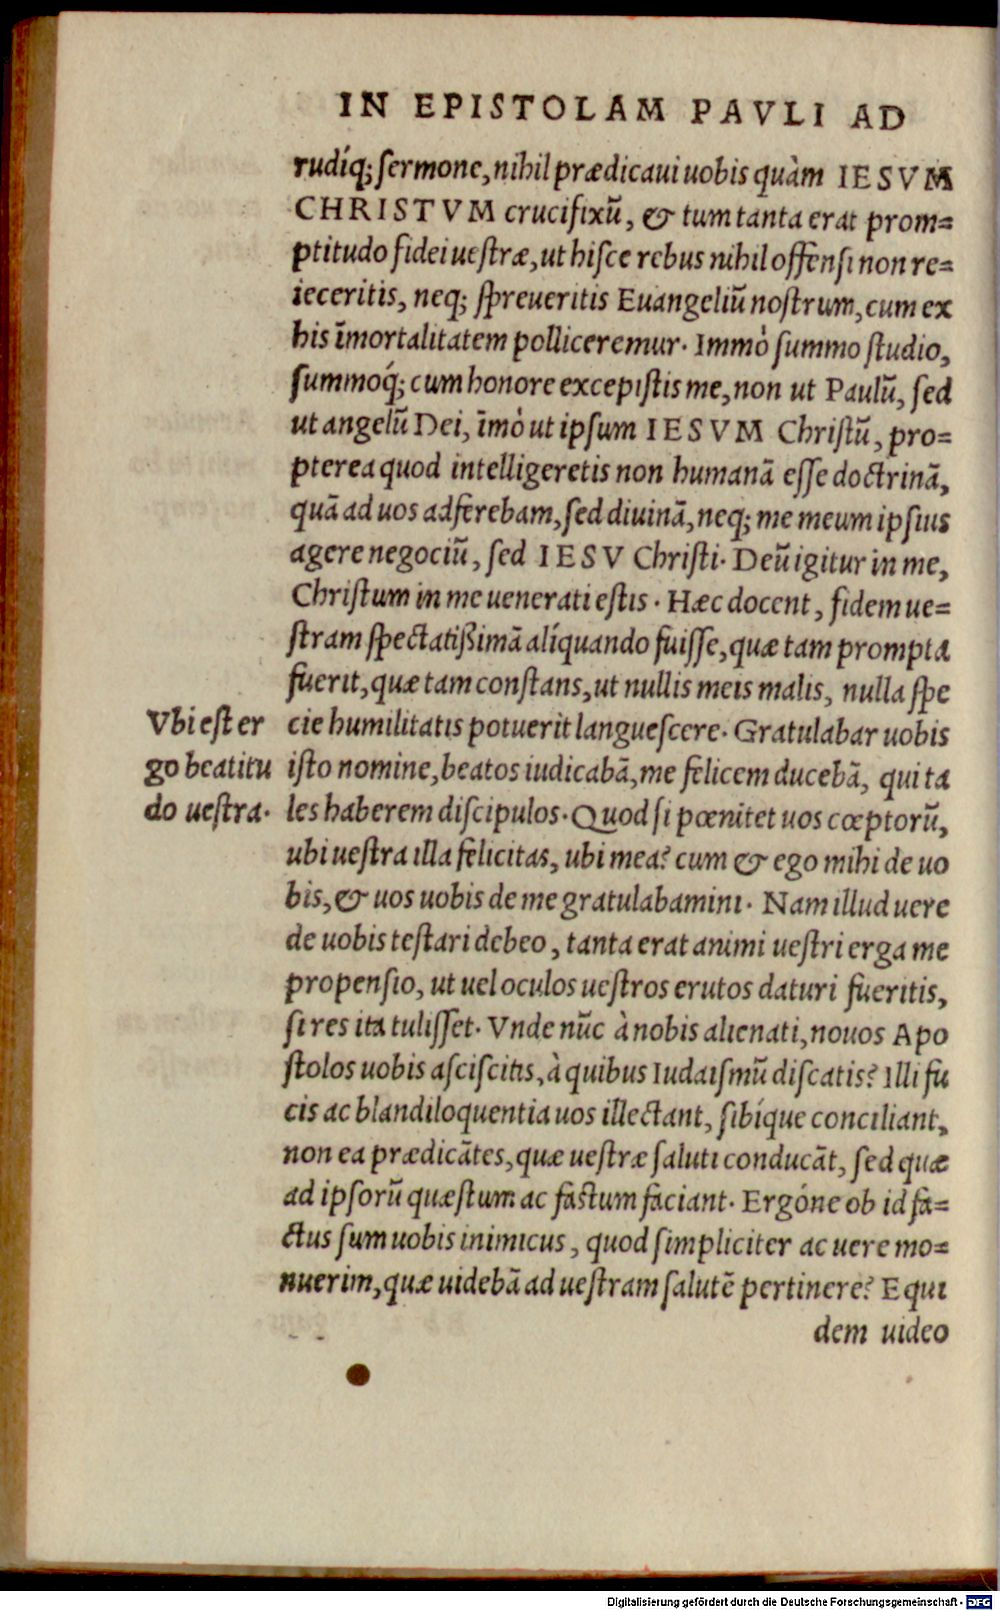 IN EPISTOLAM PAVLI AD
rudíq; sermone, nihil prædicaui uobis quàm IESVM
CHRISTVM crucifixū, & tum tanta erat prom=
ptitudo fidei uestræ, ut hisce rebus nihil offensi non re=
ieceritis, neq; spreueritis Euangeliū nostrum, cum ex
his īmortalitatem polliceremur. Immò summo studio,
summoq́; cum honore excepistis me, non ut Paulū, sed
ut angelū Dei, īmò ut ipsum IESVM Christū, pro=
pterea quod intelligeretis non humanā esse doctrinā,
quā ad uos adferebam, sed diuinā, neq; me meum ipsius
agere negociū, sed IESV Christi. Deū igitur in me,
Christum in me uenerati estis. Hæc docent, fidem ue=
stram spectatißimā alíquando fuisse, quæ tam prompta
fuerit, quæ tam constans, ut nullis meis malis, nulla spe
cie humilitatis potuerit languescere. Gratulabar uobis
isto nomine, beatos iudicabā, me felicem ducebā, qui ta
les haberem discipulos. Quod si pœnitet uos cœptorū,
ubi uestra illa felicitas, ubi mea? cum & ego mihi de uo
bis, & uos uobis de me gratulabamini. Nam illud uere
de uobis testari debeo, tanta erat animi uestri erga me
propensio, ut uel oculos uestros erutos daturi fueritis,
si res ita tulisset. Vnde nūc à nobis alienati, nouos Apo
stolos uobis asciscitis, à quibus Iudaismū discatis? Illi fu
cis ac blandiloquentia uos illectant, sibíque conciliant,
non ea prædicātes, quæ uestræ saluti conducāt, sed quæ
ad ipsorū quæstum ac fastum faciant. Ergóne ob id fa=
ctus sum uobis inimicus, quod simpliciter ac uere mo=
nuerim, quæ uidebā ad uestram salutē pertinere? Equi
dem uideo
Vbi est er
go beatitu
do uestra.
Digitalisierung gefördert durch die Deutsche Forschungsgemeinschaft - DFG